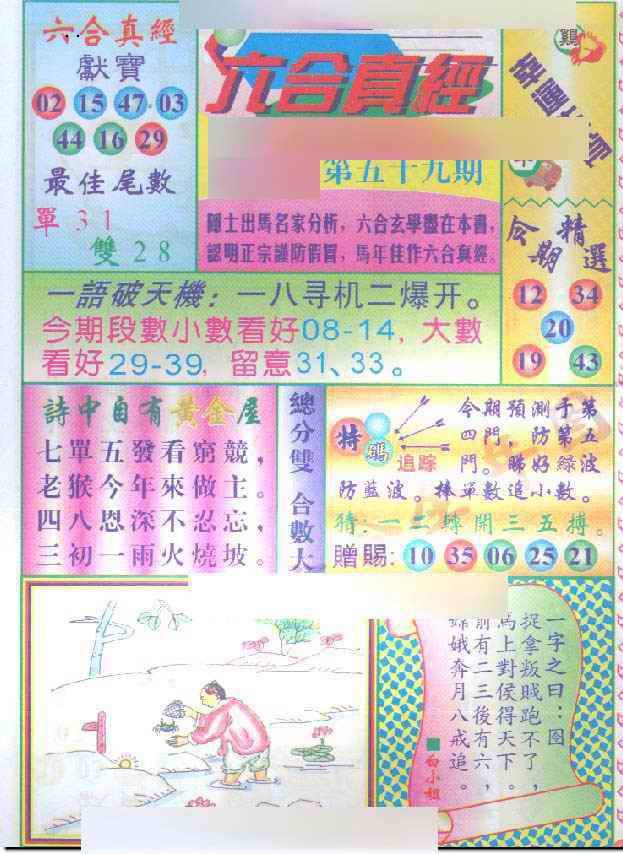 六合真經
獻寶
02 15 47 03
44 16 29
最佳尾數
單 31
雙 28
六合真經
第五十九期
隱士出馬名家分析，六合玄學盡在本書，
認明正宗謹防假冒，馬年佳作六合真經。
鷄
今期精選
12 34
20
19 43
一語破天機：一八寻机二爆开。
今期段數小數看好08-14，大數
看好29-39，留意31、33。
詩中自有黃金屋
七單五發看窮競，
老猴今年來做主。
四八恩深不忍忘，
三初一雨火燒坡。
總分雙 合數大
特碼追踪
今期預測于第
四門，防第五
門。睇好綠波
防藍波。捧單數追小數。
猜：一二球開三五搏。
贈賜：10 35 06 25 21
一字之曰：图
捉拿叛贼跑不了，
馬上對侯得天下。
前有二三後有六，
嫦娥奔月八戒追。
■白小姐